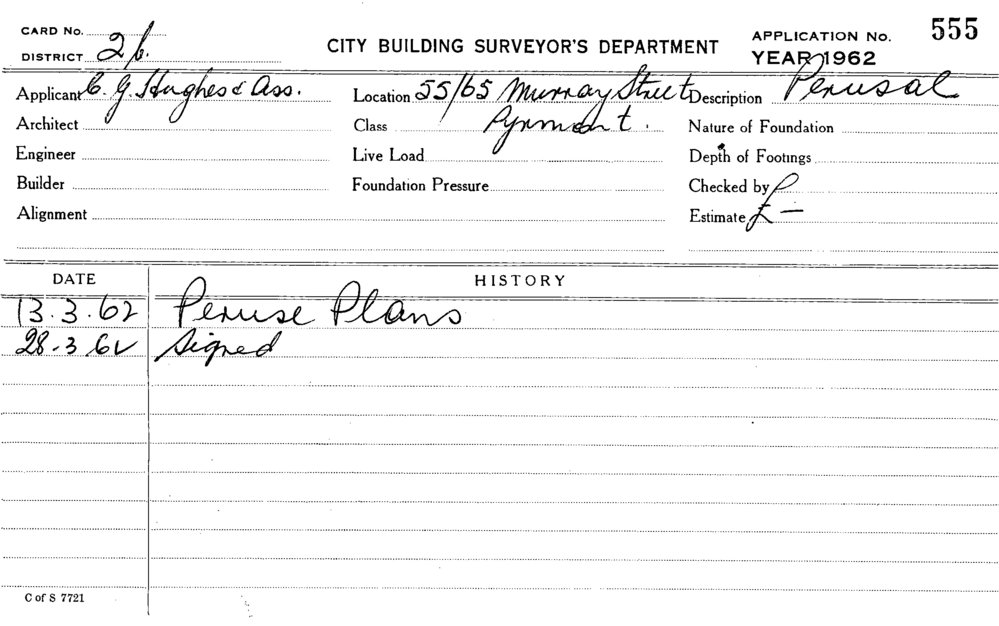 CARD No.
DISTRICT 2b.
CITY BUILDING SURVEYOR'S DEPARTMENT
APPLICATION No. 555
YEAR 1962
Applicant C. G. Hughes & Ass.
Location 55/65 Murray Street
Description Perusal
Architect
Class Pyrmont.
Nature of Foundation
Engineer
Live Load
Depth of Footings
Builder
Foundation Pressure
Checked by P
Alignment
Estimate £ —
DATE HISTORY
13.3.62 Peruse Plans
28.3.62 Signed
C of S 7721